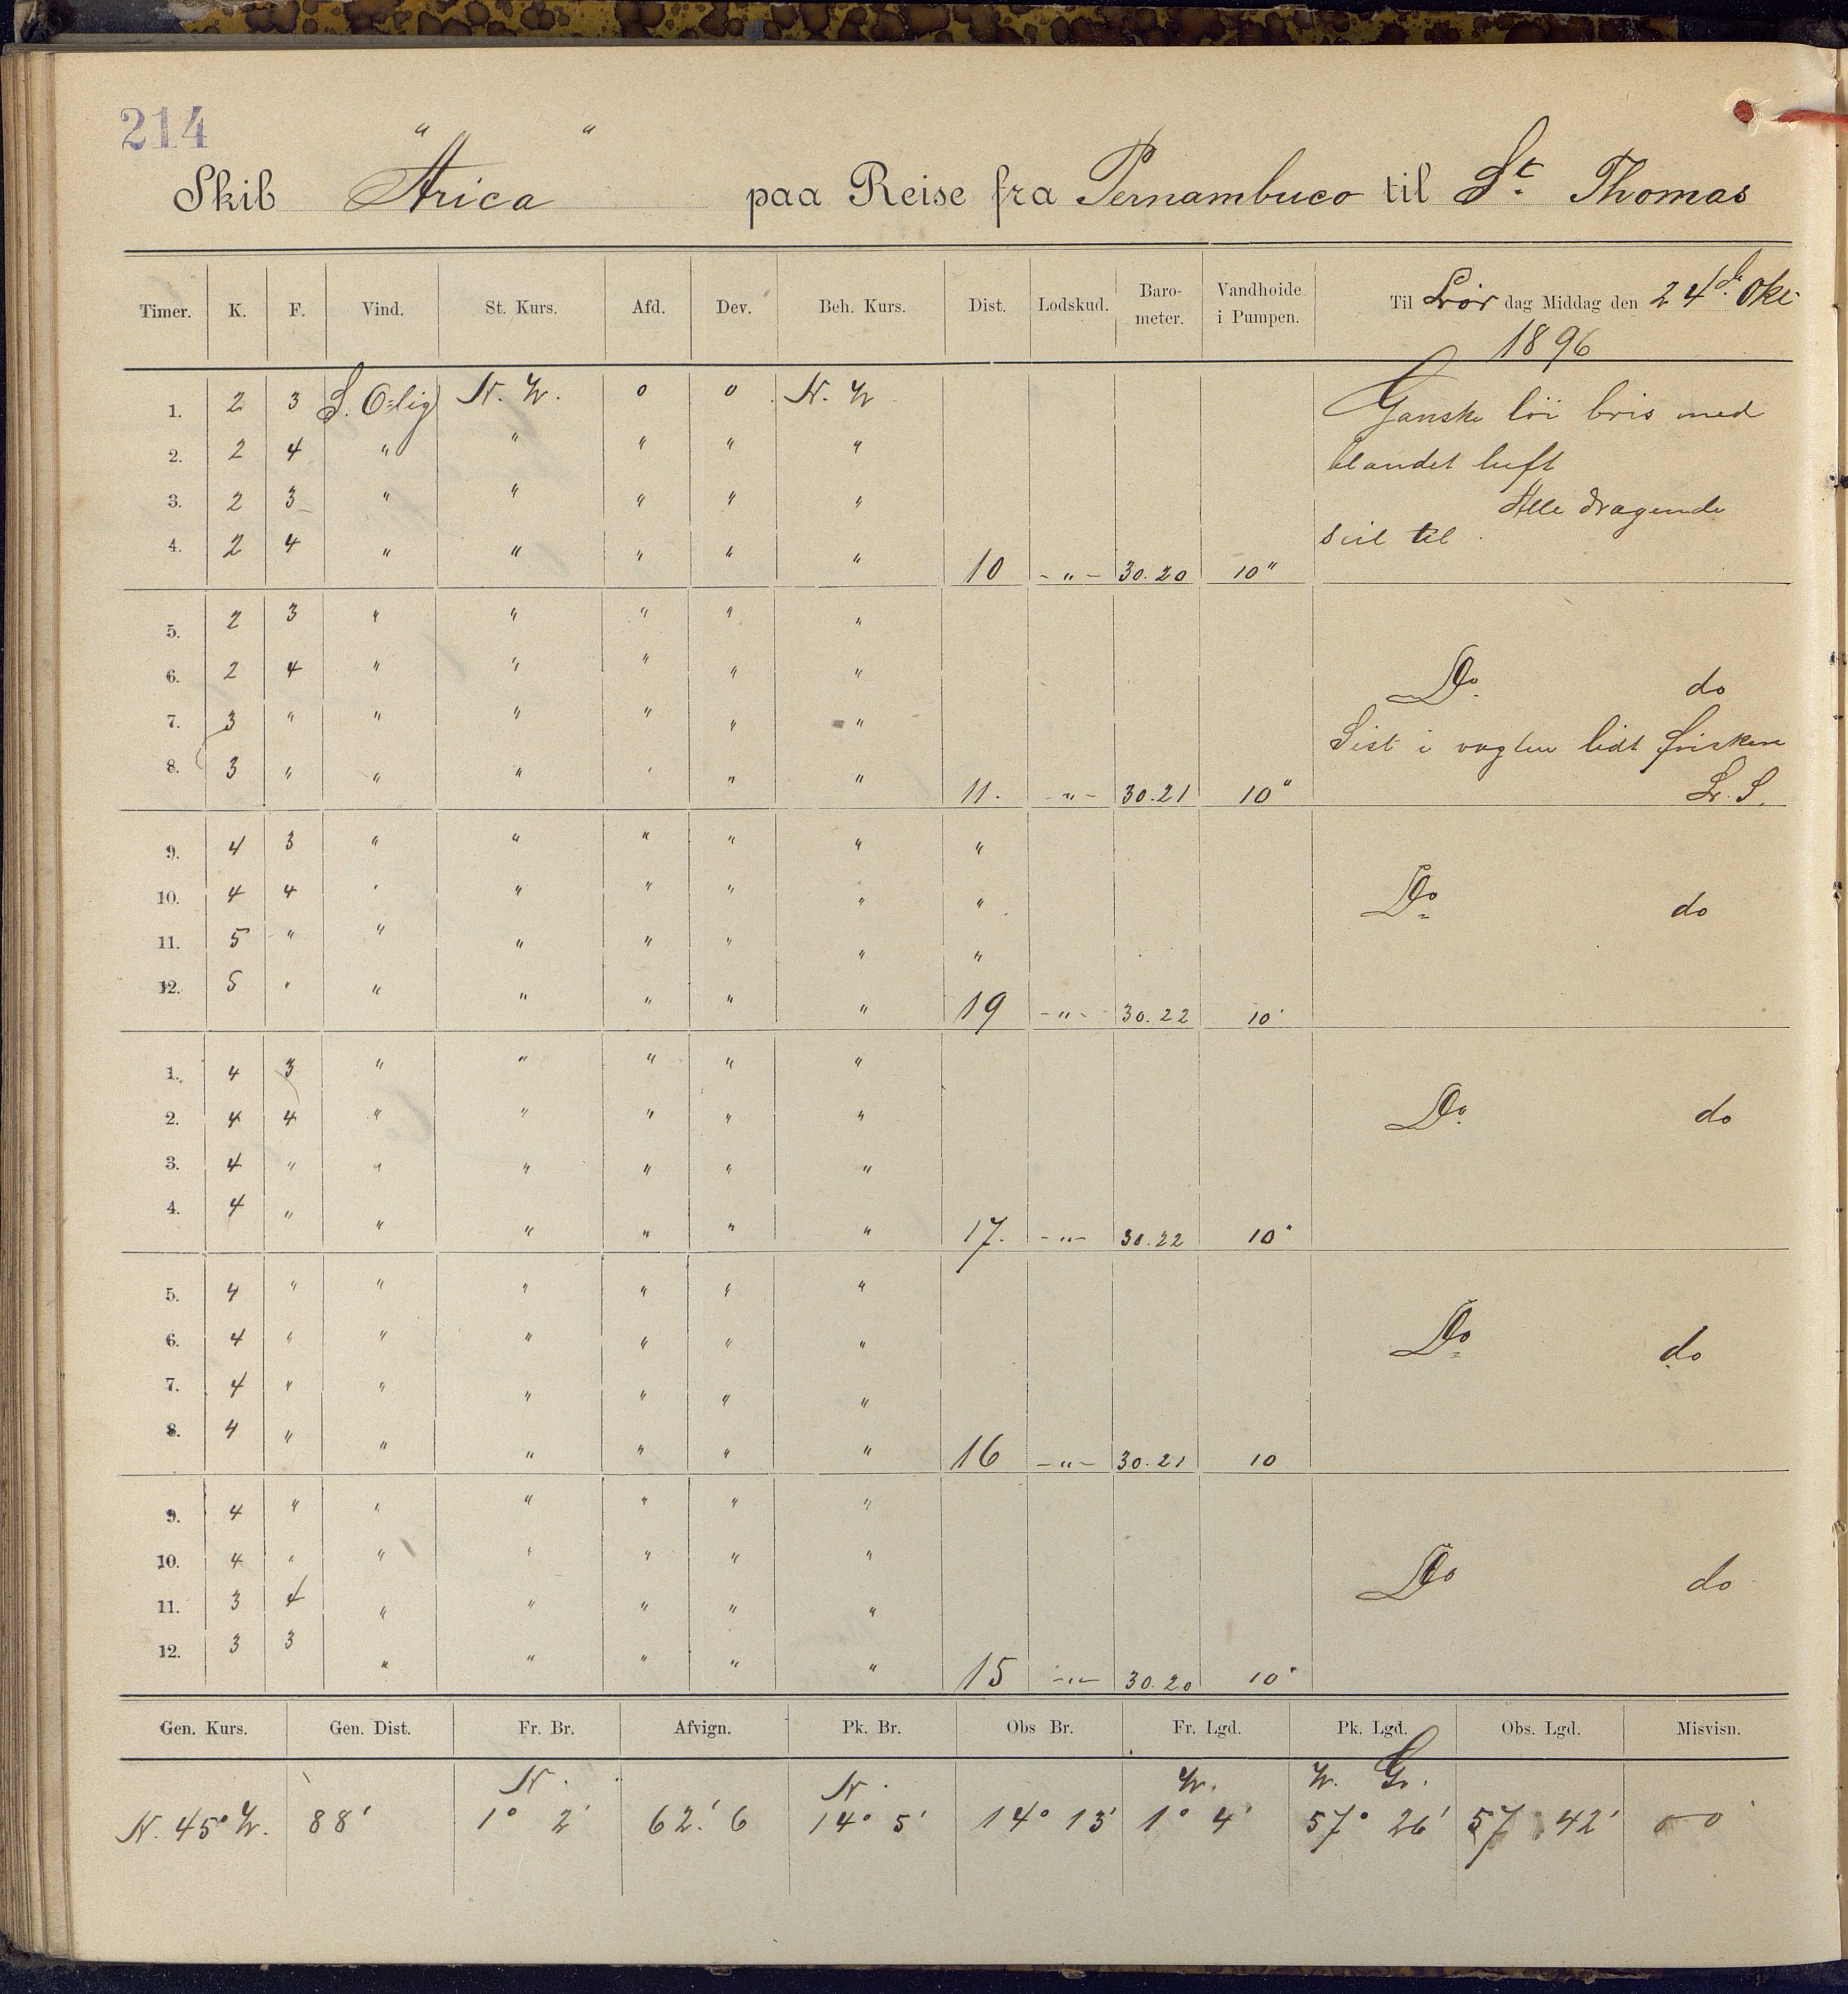 214
Skib "Arica" paa Reise fra Pernambuco til St. Thomas
Timer. K. F. Vind. St. Kurs. Afd. Dev. Beh. Kurs. Dist. Lodskud. Baro-meter. Vandhoide i Pumpen. Til Lør dag Middag den 24de Okt
1896
1. 2 3 S. O=lig N. W. 0 0 N. W Ganske löi bris med
2. 2 4 " " " " " blandet luft
3. 2 3 " " " " " Alle dragende
4. 2 4 " " " " " 10 -"- 30.20 10" seil til.
5. 2 3 " " " " "
6. 2 4 " " " " " Do. do
7. 3 " " " " " " Sist i vagten lidt friskere
8. 3 " " " " " " 11. -"- 30.21 10" L. S.
9. 4 3 " " " " " "
10. 4 4 " " " " " " Do do
11. 5 " " " " " " "
12. 5 " " " " " " 19 -"- 30.22 10"
1. 4 3 " " " " "
2. 4 4 " " " " " Do. do
3. 4 " " " " " "
4. 4 " " " " " " 17. -"- 30.22 10"
5. 4 " " " " " "
6. 4 " " " " " " Do do
7. 4 " " " " " "
8. 4 " " " " " " 16 -"- 30.21 10
9. 4 " " " " " "
10. 4 " " " " " " Do do
11. 3 4 " " " " "
12. 3 3 " " " " " 15 -"- 30.20 10"
Gen. Kurs. Gen. Dist. Fr. Br. Afvign. Pk. Br. Obs Br. Fr. Lgd. Pk. Lgd. Obs. Lgd. Misvisn.
N. N. W. W. Gr.
N. 45° W. 88' 1° 2' 62.'6 14° 5' 14° 13' 1° 4' 57° 26' 57° 42' 0 0